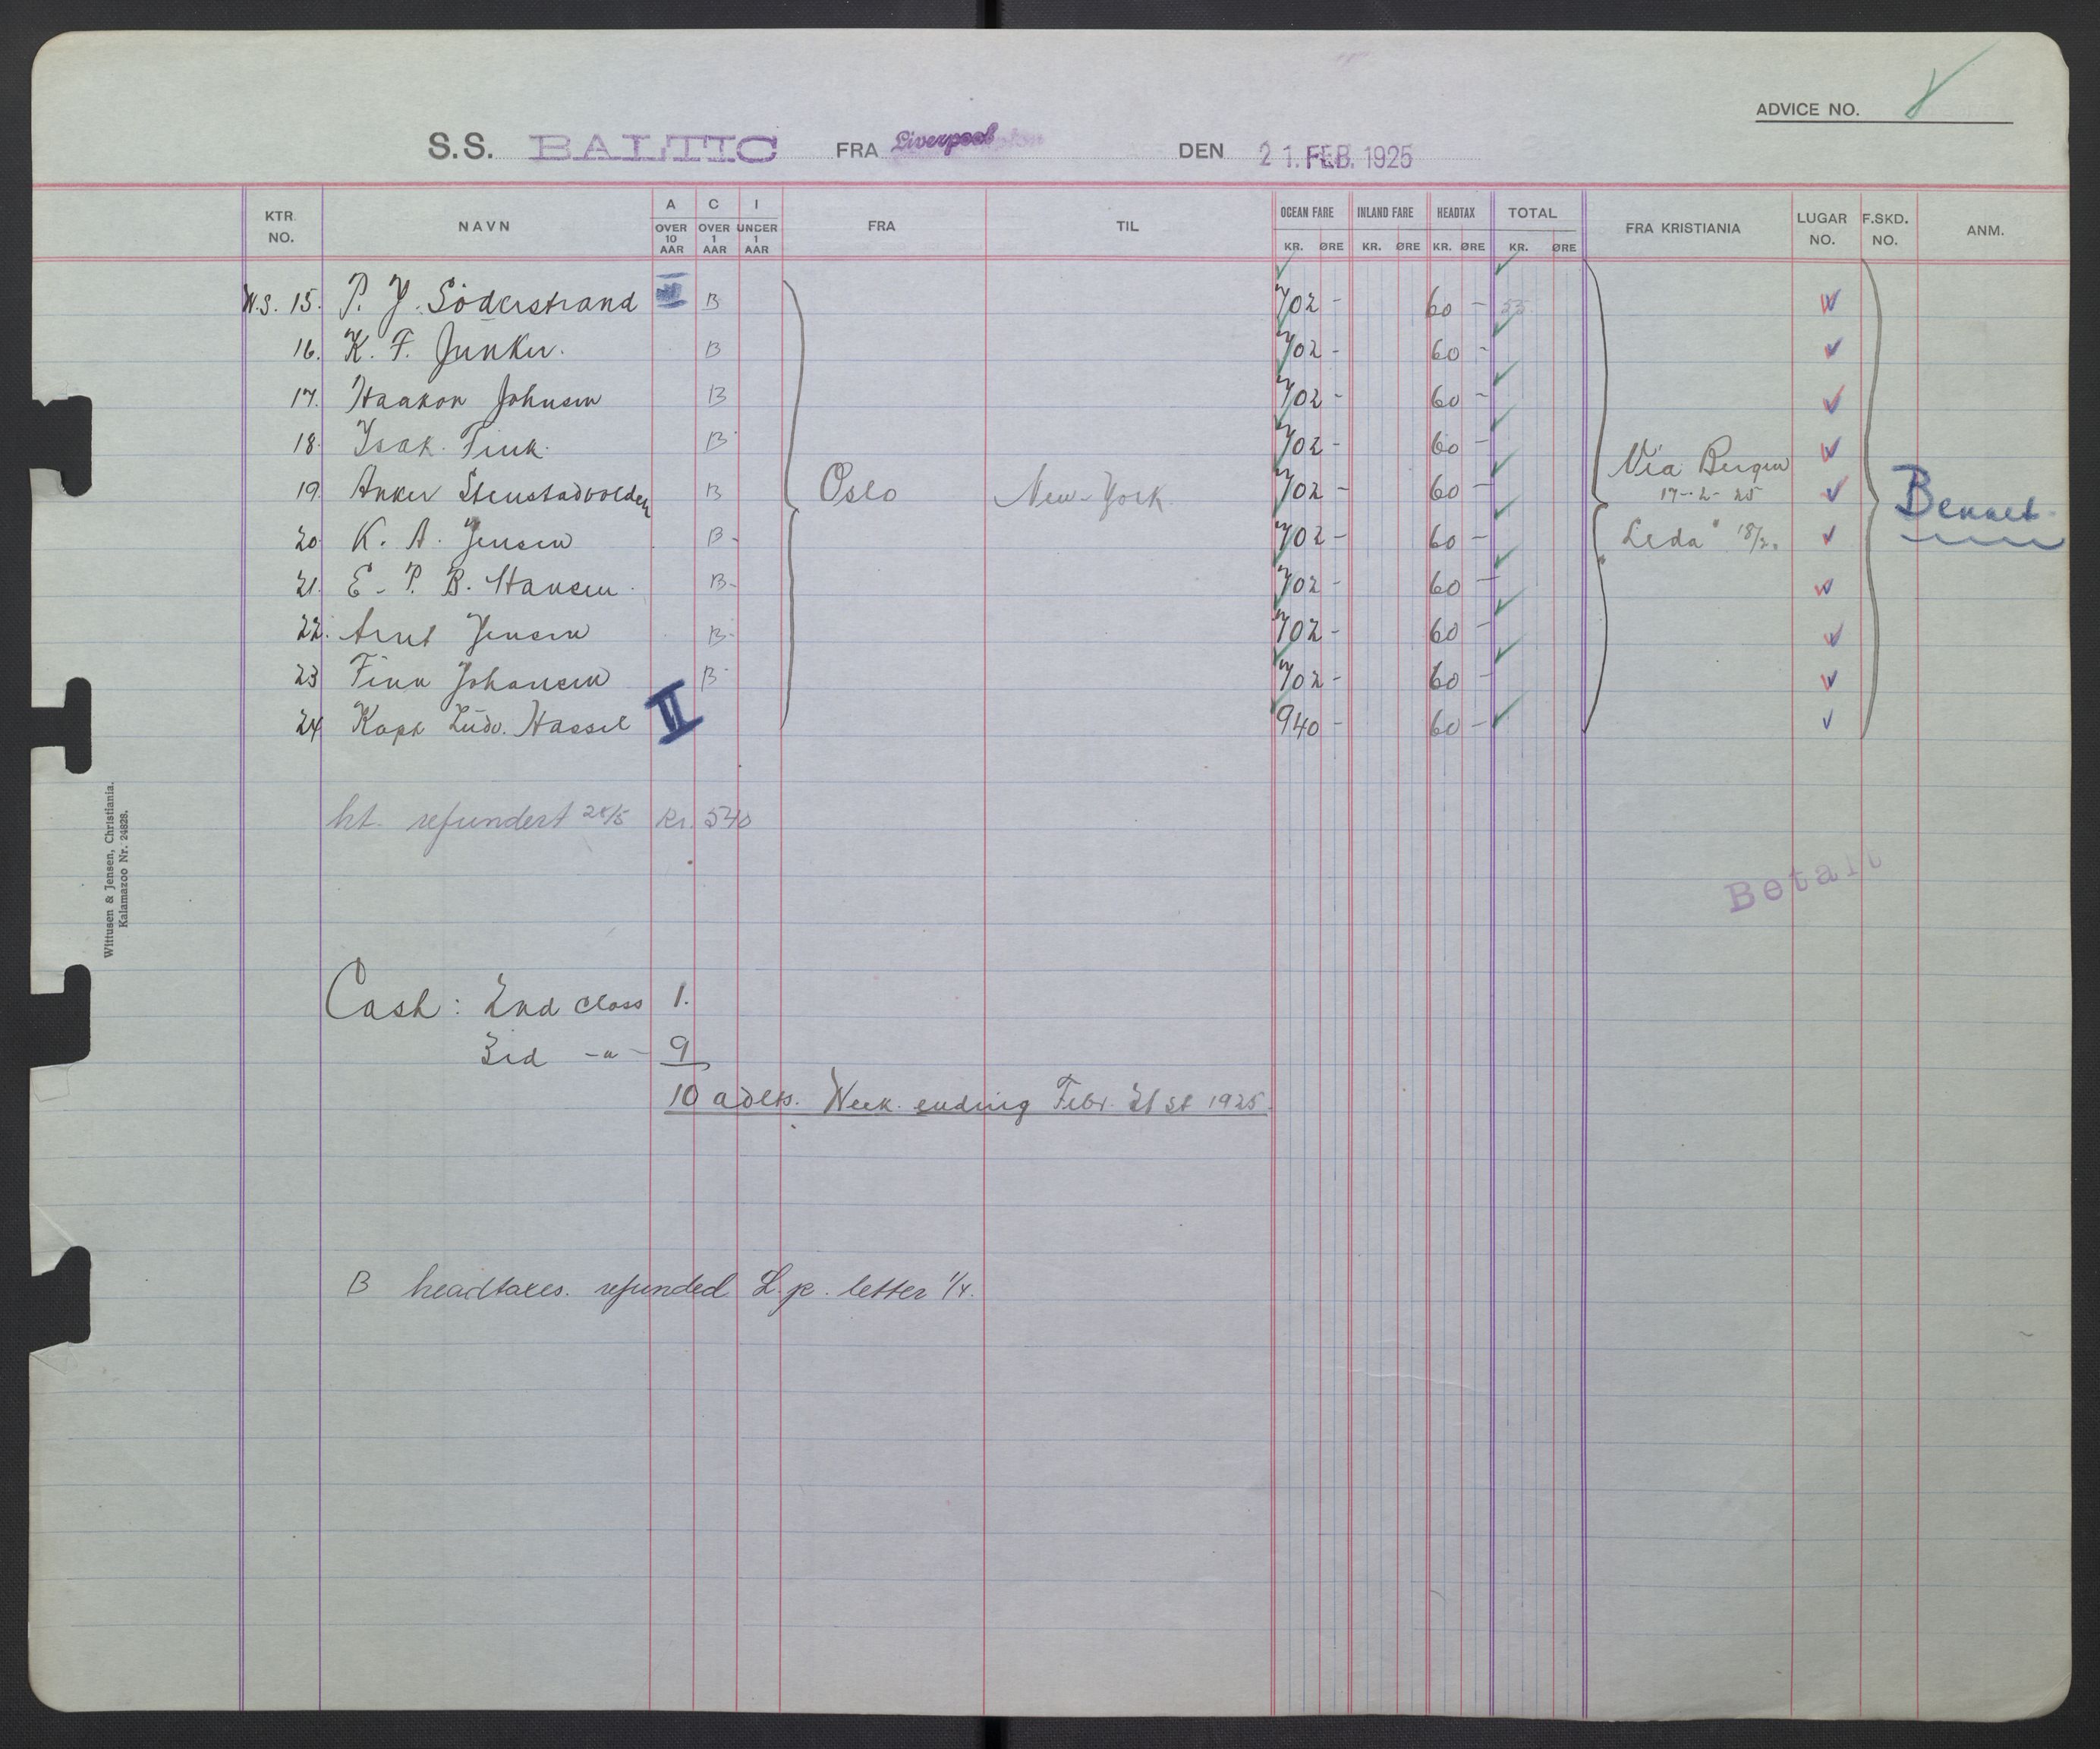 ADVICE NO.
S.S. BALTIC FRA Liverpool DEN 21. FEB. 1925
KTR. NO. NAVN A OVER 10 AAR C OVER 1 AAR I UNDER 1 AAR FRA TIL OCEAN FARE KR. ØRE INLAND FARE KR. ØRE HEADTAX KR. ØRE TOTAL KR. ØRE FRA KRISTIANIA LUGAR NO. F.SKD. NO. ANM.
W.S. 15. P. J. Söderstrand B 702 - 60 -
16. K. F. Junker. B 702 - 60 -
17. Haakon Johnsen B 702 - 60 -
18. Isak Fink. B 702 - 60 - Via Bergen
19. Anker Stenstadvolden B Oslo New-York 702 - 60 - 17-2-25 Bennet
20 K. A. Jensen B - 702 - 60 - Leda" 18/2.
21. E. P. B. Hansen B - 702 - 60 -
22. Arnt Jensen B - 702 - 60 -
23 Finn Johansen B - 702 - 60 -
24 Kapt Ludv. Hassel II 940 - 60 -
ht. refundert 28/5 Kr. 540
Betalt
Cash: 2nd class 1.
3rd -"- 9
10 adlts. Week ending Febr. 21st 1925
B headtaxes refunded L.p. letter 1/4.
Wittusen & Jensen, Christiania.
Kalamazoo Nr. 24828.